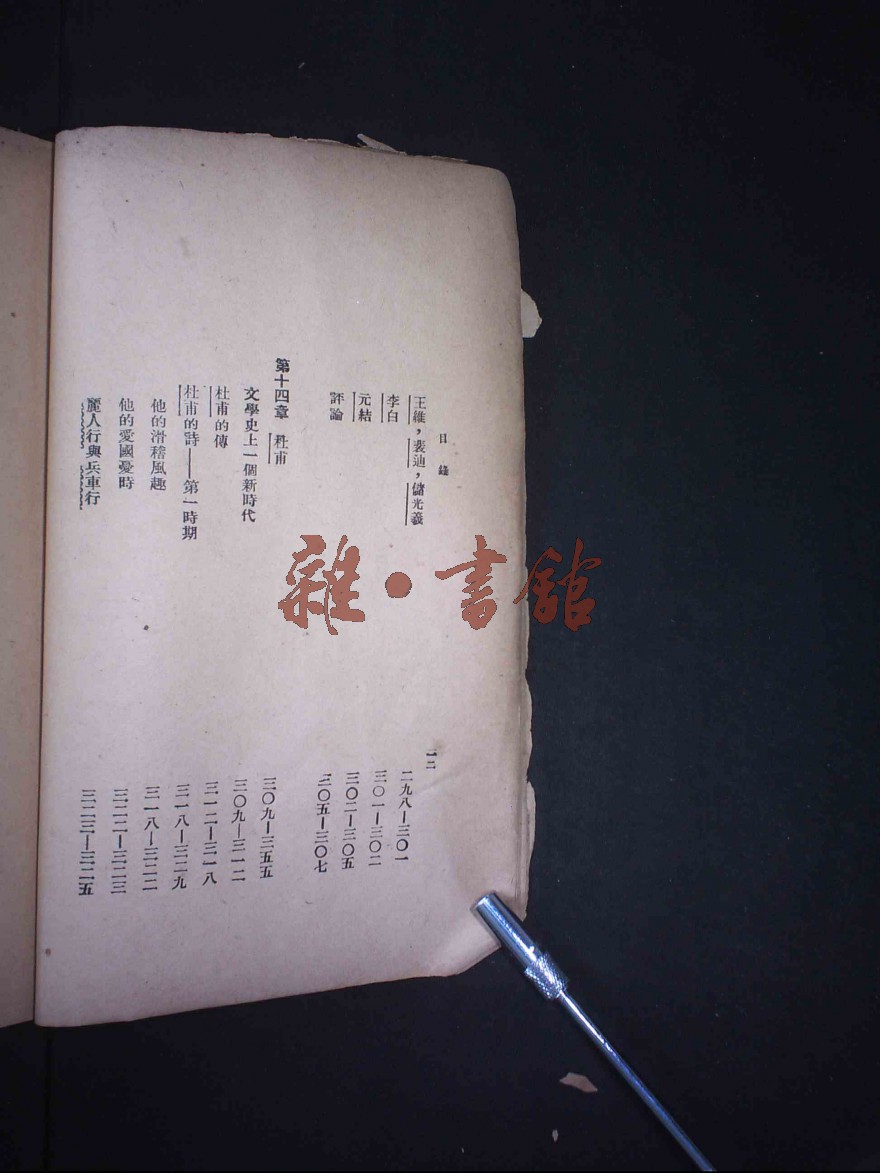 目錄
一二
王維，裴迪，儲光羲
二九八—三〇一
李白
三〇一—三〇二
元結
三〇二—三〇五
評論
三〇五—三〇七
第十四章 杜甫
三〇九—三五五
文學史上一個新時代
三〇九—三一二
杜甫的傳
三一二—三一八
杜甫的詩——第一時期
三一八—三二九
他的滑稽風趣
三一八—三二二
他的愛國憂時
三二二—三二三
麗人行與兵車行
三二三—三二五
雜・書館